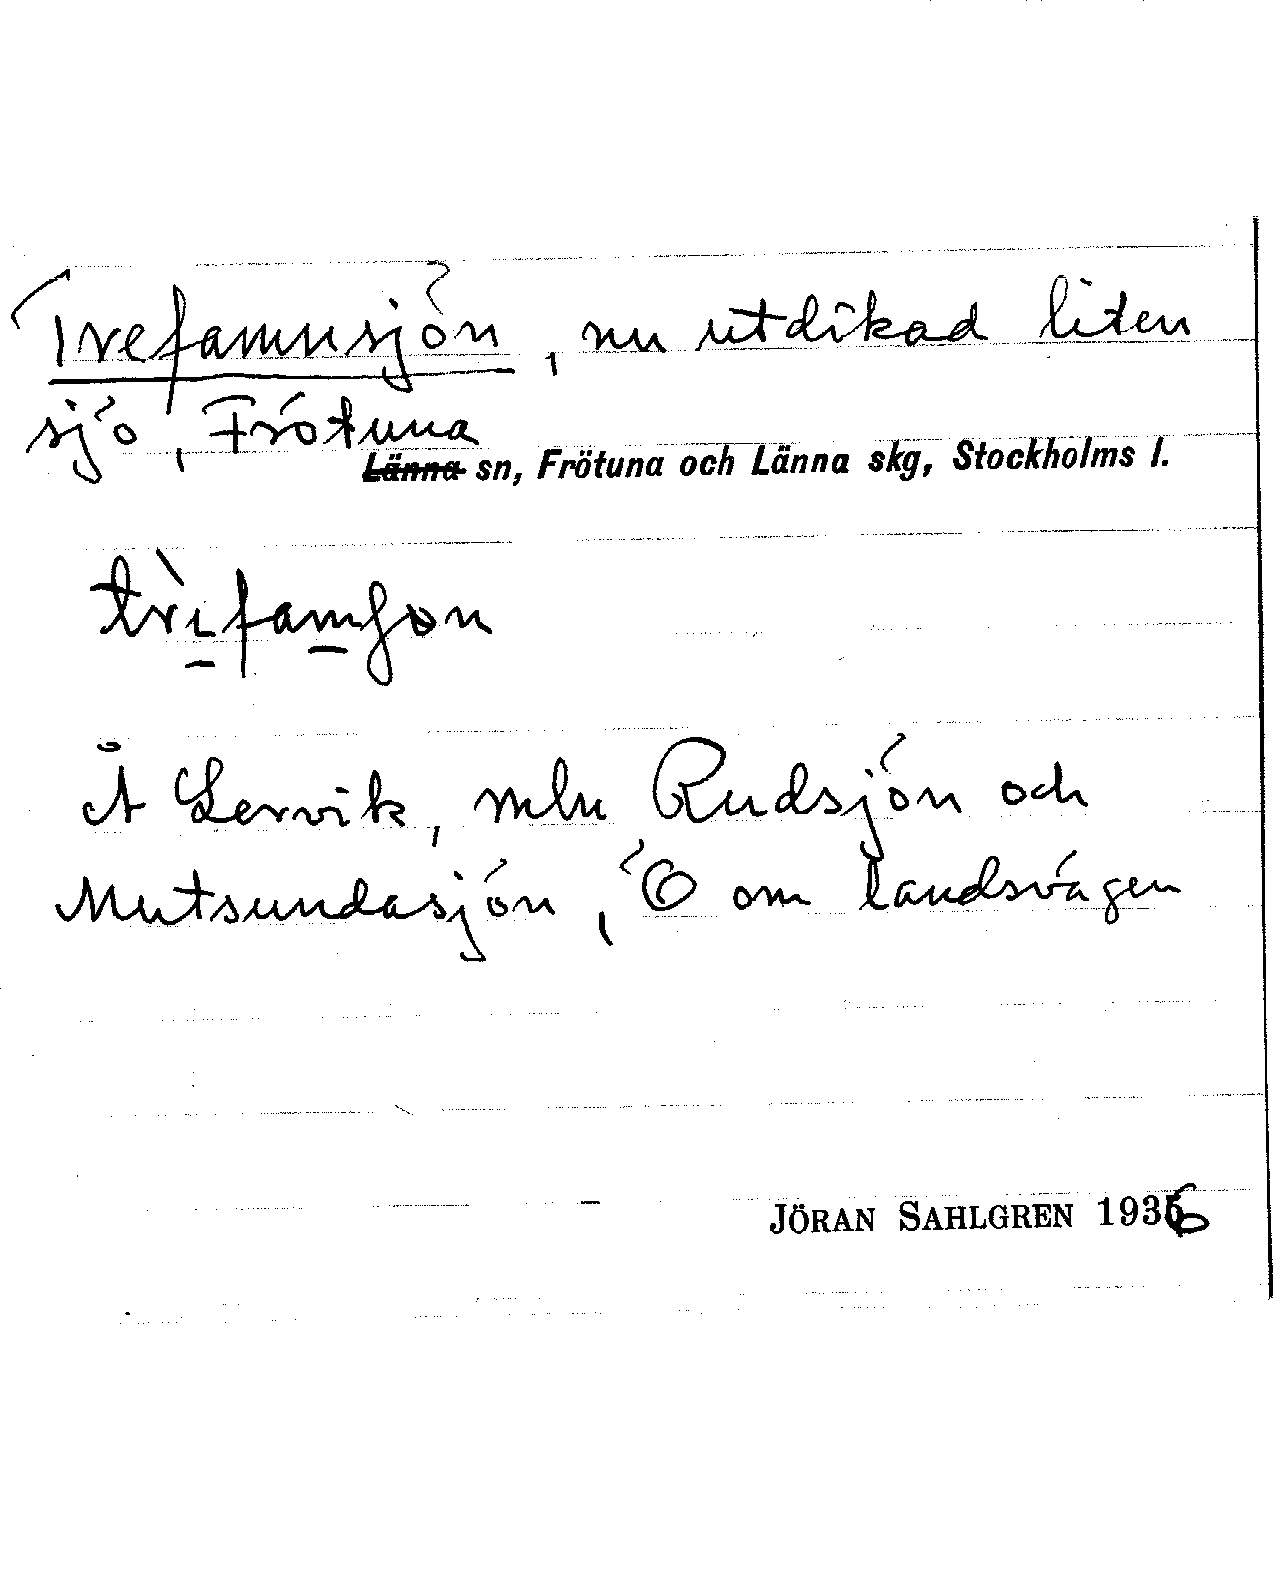 Trefamnsjön, nu utdikad liten
sjö, Frötuna
Länna sn, Frötuna och Länna skg, Stockholms l.
trìfamʃon
Å Lervik, mln Rudsjön och
Mutsundasjön, Ö om landsvägen
JÖRAN SAHLGREN 1936